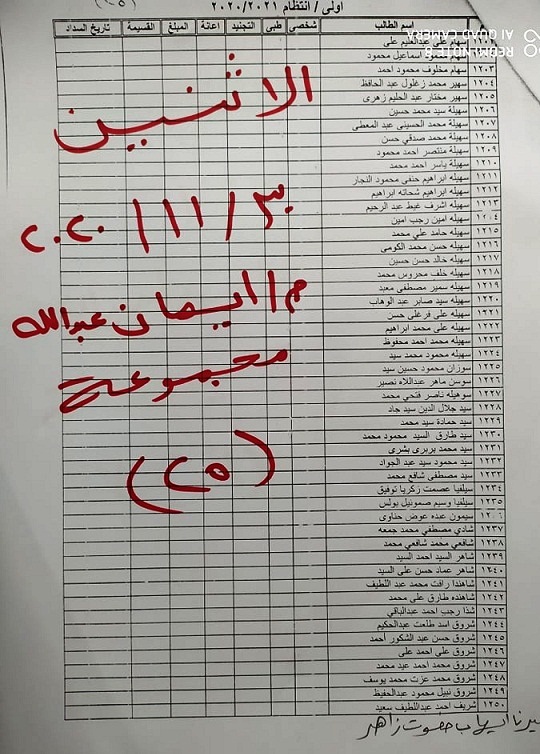 اولى / انتظام ٢٠٢٠/٢٠٢١
اسم الطالب شخصي طبى التجنيد اعانة المبلغ القسيمة تاريخ السداد
AI QUAD CAMERA
REDMI NOTE 8
سهام محمود اسماعيل محمود
١٢٠٣ سهام مخلوف محمود احمد
١٢٠٤ سهير محمد زغلول عبد الحافظ
١٢٠٥ سهير مختار عبد الحليم زهرى
١٢٠٦ سهيلة سيد محمد حسين
١٢٠٧ سهيلة محمد الحسينى عبد المعطى
١٢٠٨ سهيلة محمد صدقي حسن
١٢٠٩ سهيلة منتصر احمد محمود
١٢١٠ سهيلة ياسر احمد محمد
١٢١١ سهيله ابراهيم حنفى محمود النجار
١٢١٢ سهيله ابراهيم شحاته ابراهيم
١٢١٣ سهيله اشرف غيط عبد الرحيم
سهيله امين رجب امين
١٢١٥ سهيله حامد علي محمد
١٢١٦ سهيله حسن محمد الكومى
١٢١٧ سهيله خالد حسن حسين
١٢١٨ سهيله خلف محروس محمد
١٢١٩ سهيله سمير مصطفي معبد
١٢٢٠ سهيله سيد صابر عبد الوهاب
١٢٢١ سهيله على فرغلى حسن
١٢٢٢ سهيله على محمد ابراهيم
١٢٢٣ سهيله محمد احمد محفوظ
١٢٢٤ سهيله محمود محمد سيد
١٢٢٥ سوزان محمود حسين سيد
١٢٢٦ سوسن ماهر عبداللاه نصير
١٢٢٧ سوهيله ناصر فتحي محمد
١٢٢٨ سيد جلال الدين سيد جاد
١٢٢٩ سيد حمادة سيد محمد
١٢٣٠ سيد طارق السيد محمود محمد
١٢٣١ سيد محمد بربرى بشرى
١٢٣٢ سيد محمود سيد عبد الجواد
١٢٣٣ سيد مصطفي شافع محمد
١٢٣٤ سيلفيا عصمت زكريا توفيق
١٢٣٥ سيلفيا وسيم صموئيل بولس
سيمون عبده عوض حناوى
١٢٣٧ شادي مصطفي محمد جمعه
١٢٣٨ شافعي محمد شافعي محمد
١٢٣٩ شاهر السيد احمد السيد
١٢٤٠ شاهر عماد حسن على السيد
١٢٤١ شاهندا رافت محمد عبد اللطيف
١٢٤٢ شاهنده طارق على محمد
١٢٤٣ شذا رجب احمد عبدالباقي
١٢٤٤ شروق اسد طلعت عبدالحكيم
١٢٤٥ شروق حسن عبد الشكور أحمد
١٢٤٦ شروق على احمد على
١٢٤٧ شروق محمد احمد عبد محمد
١٢٤٨ شروق محمد عزت محمد يوسف
١٢٤٩ شروق نبيل محمود عبدالحفيظ
١٢٥٠ شريف احمد عبداللطيف سعيد
الاثنين
٣٠/١١/٢٠٢٠
م/ايمان عبدالله
مجموعة
(٢٥)